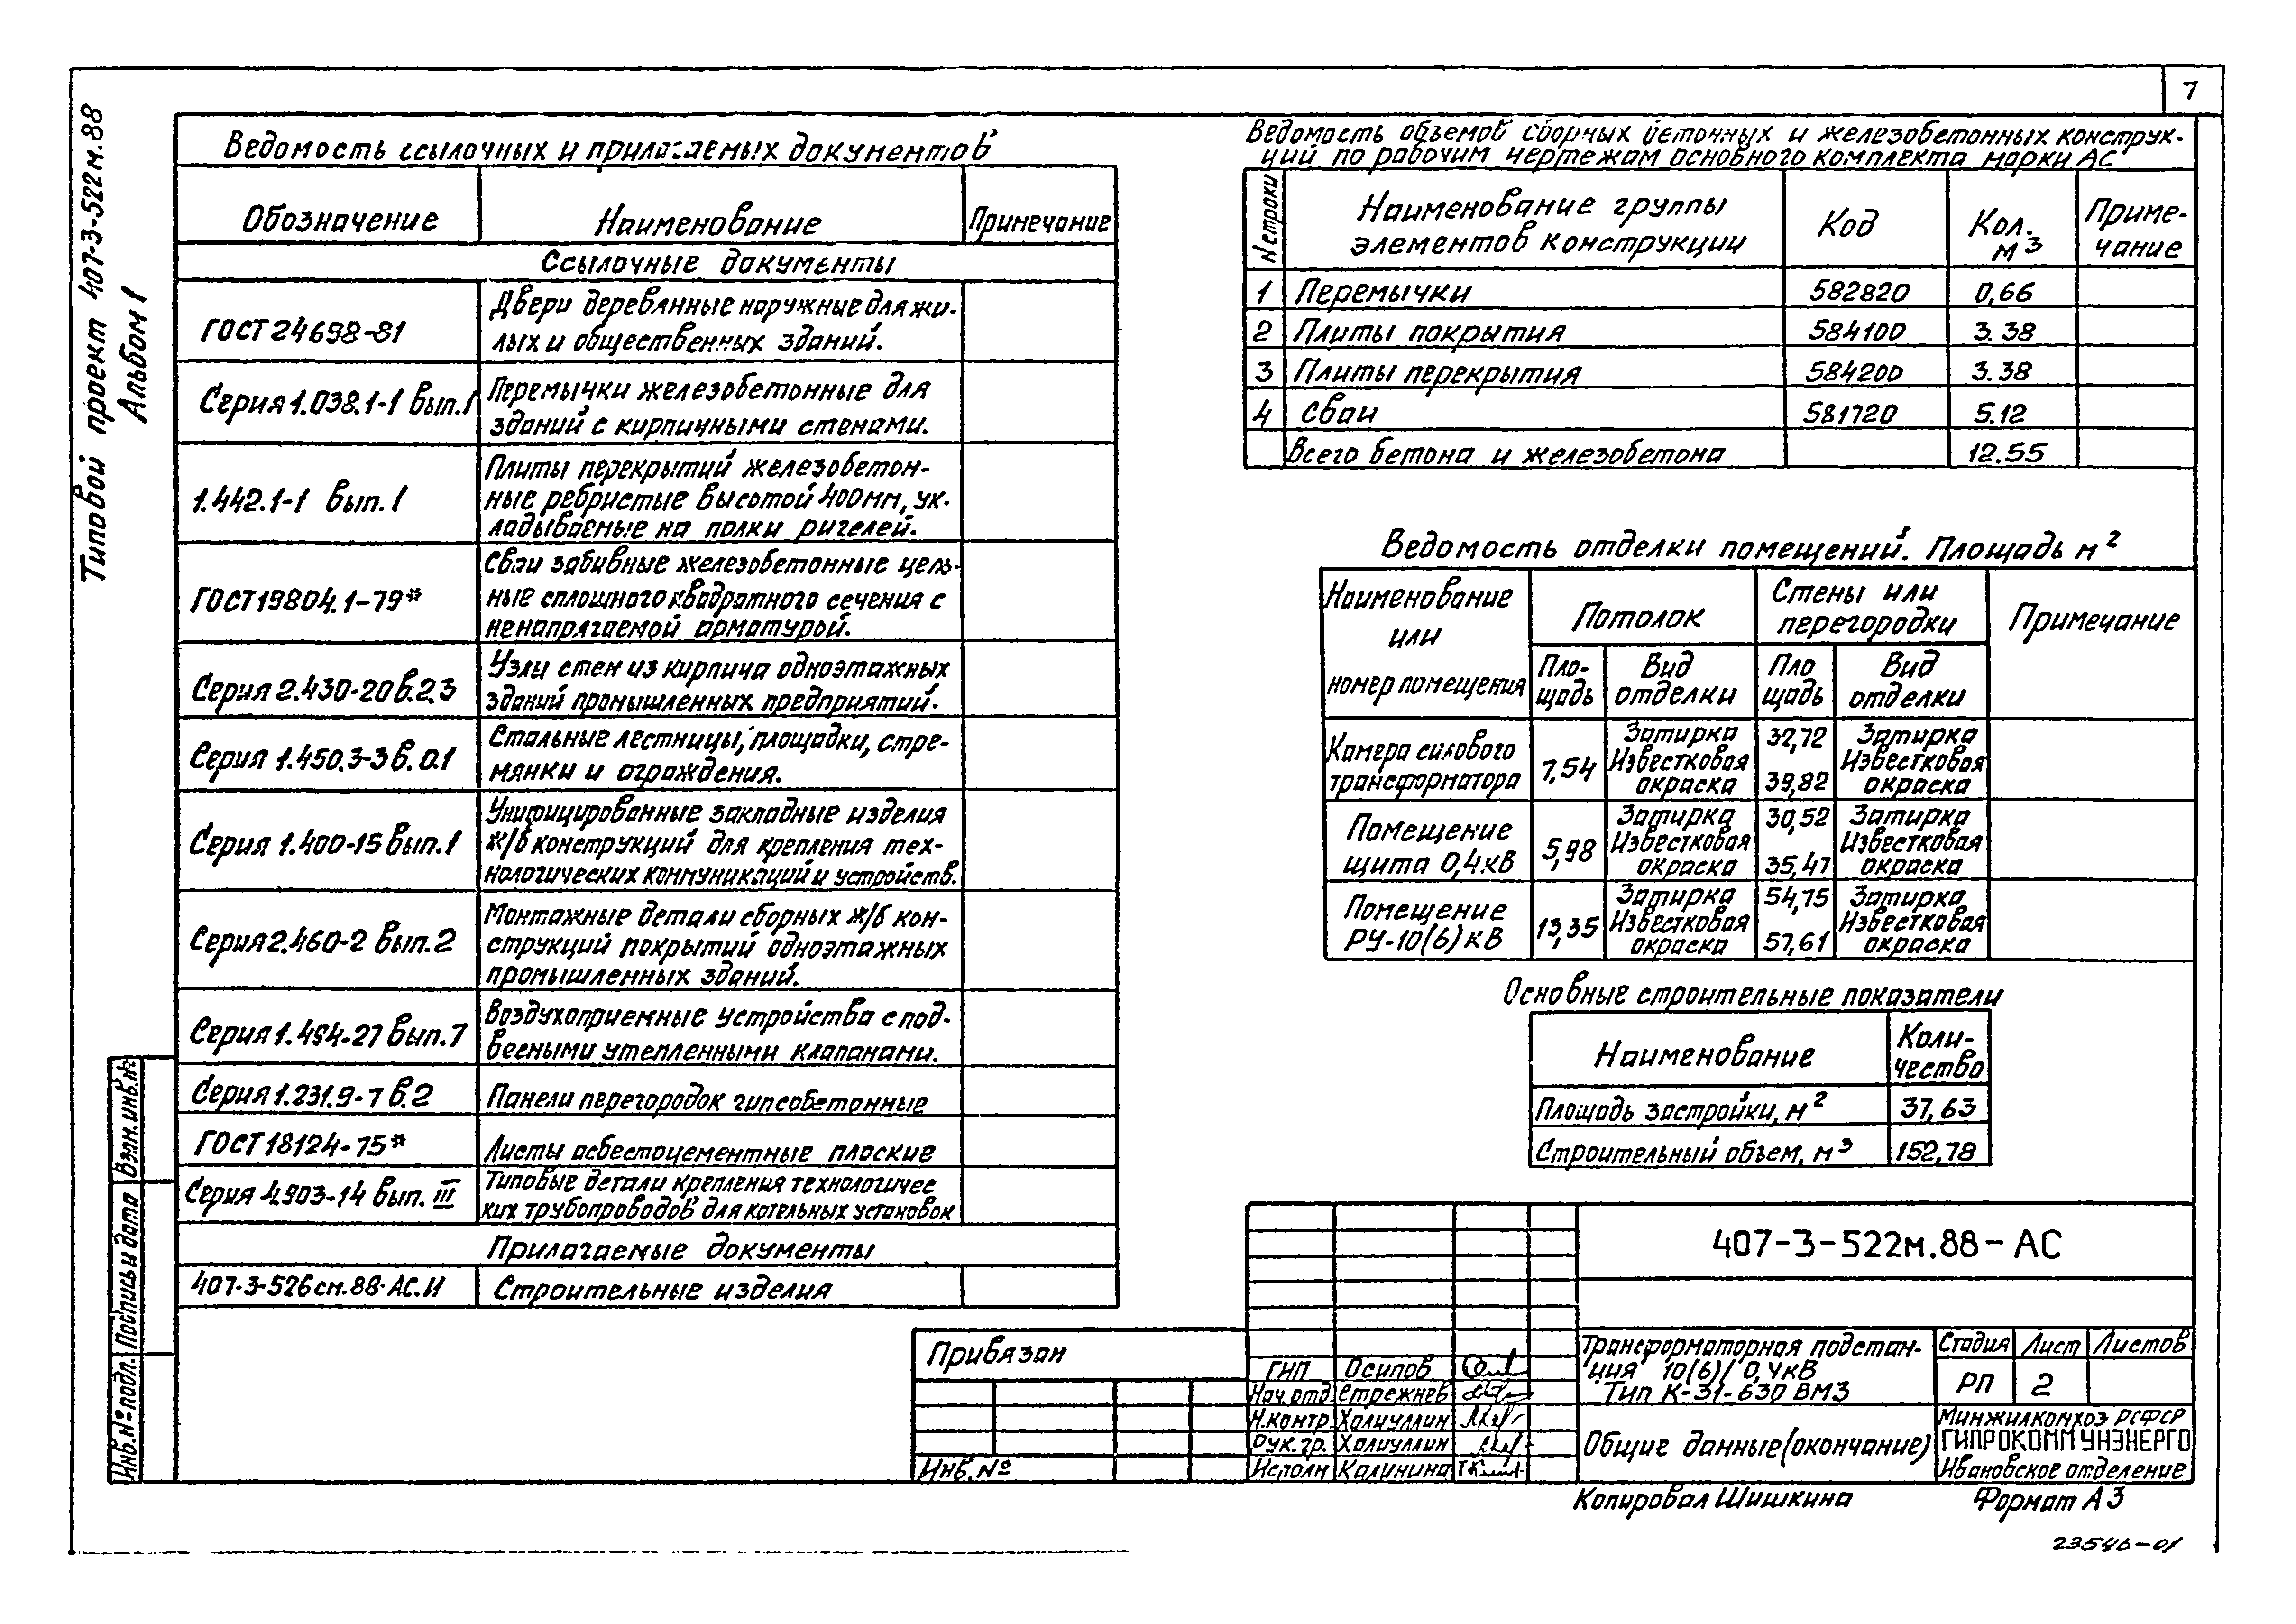 7
Типовой проект 407-3-522м.88
Альбом 1
Ведомость ссылочных и прилагаемых документов
Обозначение Наименование Примечание
Ссылочные документы
ГОСТ 24698-81
Двери деревянные наружные для жи-
лых и общественных зданий.
Серия 1.038.1-1 вып.1
Перемычки железобетонные для
зданий с кирпичными стенами.
1.442.1-1 вып.1
Плиты перекрытий железобетон-
ные ребристые высотой 400мм, ук-
ладываемые на полки ригелей.
ГОСТ19804.1-79*
Сваи забивные железобетонные цель-
ные сплошного квадратного сечения с
ненапрягаемой арматурой.
Серия 2.430-20 в.2.3
Узлы стен из кирпича одноэтажных
зданий промышленных предприятий.
Серия 1.450.3-3 в.0.1
Стальные лестницы, площадки, стре-
мянки и ограждения.
Серия 1.400-15 вып.1
Унифицированные закладные изделия
ж/б конструкций для крепления тех-
нологических коммуникаций и устройств.
Серия 2.460-2 вып.2
Монтажные детали сборных ж/б кон-
струкций покрытий одноэтажных
промышленных зданий.
Серия 1.494-27 вып.7
Воздухоприемные устройства с под-
весными утепленными клапанами.
Серия 1.231.9-7 в.2
Панели перегородок гипсобетонные
ГОСТ 18124-75*
Листы асбестоцементные плоские
Серия 4.903-14 вып. III
Типовые детали крепления технологичес
ких трубопроводов для котельных установок
Прилагаемые документы
407-3-526см.88-АС.И Строительные изделия
Ведомость объемов сборных бетонных и железобетонных конструк-
ций по рабочим чертежам основного комплекта марки АС
N строки
Наименование группы
элементов конструкции
Код
Кол.
м3
Приме-
чание
1 Перемычки 582820 0,66
2 Плиты покрытия 584100 3.38
3 Плиты перекрытия 584200 3.38
4 Сваи 581720 5.12
Всего бетона и железобетона 12.55
Ведомость отделки помещений. Площадь м²
Наименование
или
номер помещения
Потолок
Стены или
перегородки
Примечание
Пло-
щадь
Вид
отделки
Пло
щадь
Вид
отделки
Камера силового
трансформатора
7,54
Затирка
Известковая
окраска
32,72
39,82
Затирка
Известковая
окраска
Помещение
щита 0,4кВ
5,98
Затирка
Известковая
окраска
30,52
35,47
Затирка
Известковая
окраска
Помещение
РУ-10(6)кВ
13,35
Затирка
Известковая
окраска
54,75
57,61
Затирка
Известковая
окраска
Основные строительные показатели
Наименование
Коли-
чество
Площадь застройки, м² 37,63
Строительный объем, м³ 152,78
407-3-522м.88-АС
Привязан
Инв.№
ГИП Осипов
Нач.отд. Стрежнев
Н.контр. Халиуллин
Рук.гр. Халиуллин
Исполн Калинина
Трансформаторная подстан-
ция 10(6)/0,4кВ
Тип К-31-630 ВМЗ
Стадия Лист Листов
РП 2
Общие данные (окончание)
Минжилкомхоз РСФСР
ГИПРОКОММУНЭНЕРГО
Ивановское отделение
Инв.№ подл. Подпись и дата Взам.инв.№
Копировал Шишкина Формат А3
23546-01